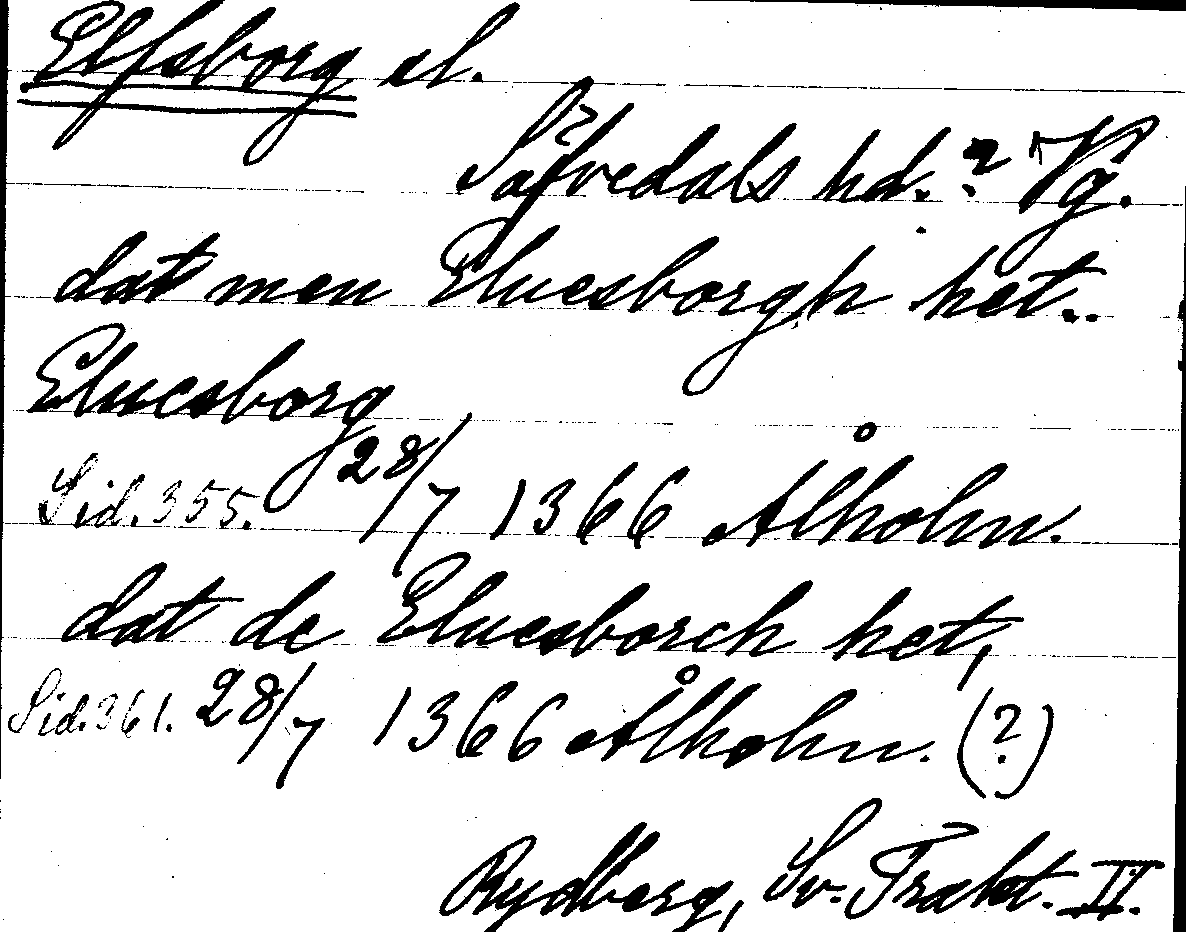 Elfsborg sl.
Säfvedals hd.? Vg.
dat men Eluesborgh het..
Eluesborg
Sid. 355. 28/7 1366 Ålholm.
dat de Eluesborch het,
Sid. 361. 28/7 1366 Ålholm. (?)
Rydberg, Sv. Trakt. II.